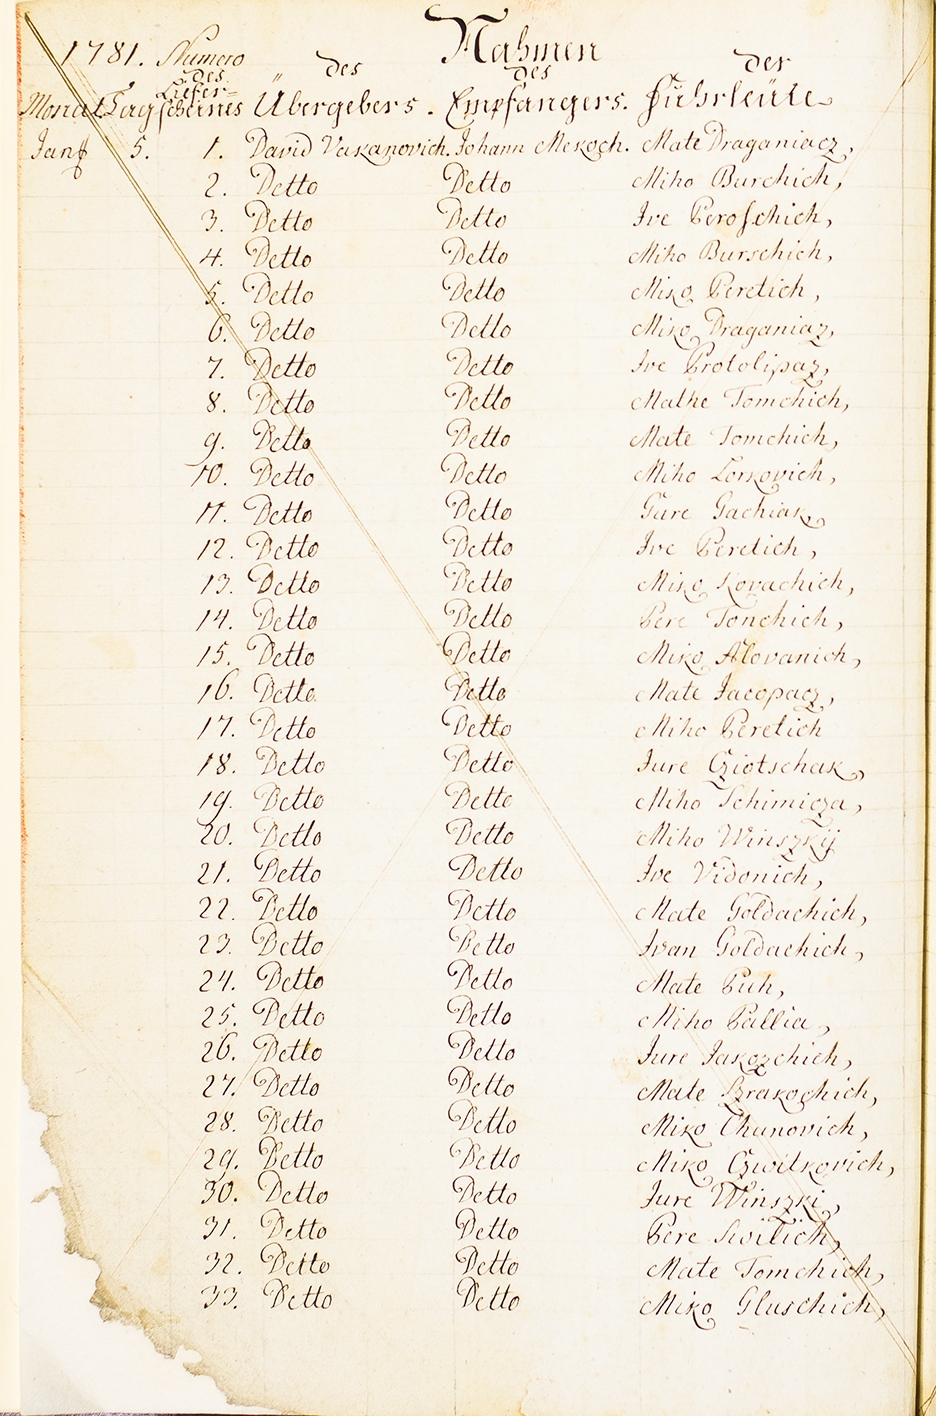 1781. Numero Nahmen
des des des der
Liefer-
Monat Tag scheines Übergebers. Empfangers. Fuhrleüte
Jan 5. 1. David Vukanovich. Johann Mekoch. Mate Draganiacz,
2. Detto Detto Miho Burchich,
3. Detto Detto Ive Peroschich,
4. Detto Detto Miho Burschich,
5. Detto Detto Miko Peretich,
6. Detto Detto Miko Draganiaz,
7. Detto Detto Ive Protolipaz,
8. Detto Detto Mathe Tomchich,
9. Detto Detto Mate Tomchich,
10. Detto Detto Miho Lorkovich,
11. Detto Detto Gure Gachiak,
12. Detto Detto Ive Peretich,
13. Detto Detto Miko Kovachich,
14. Detto Detto Pere Tonchich,
15. Detto Detto Miko Alovanich,
16. Detto Detto Mate Jacopacz,
17. Detto Detto Miho Peretich
18. Detto Detto Jure Cziotschak,
19. Detto Detto Miho Schimicza,
20. Detto Detto Miho Winszkij
21. Detto Detto Ive Vidonich,
22. Detto Detto Mate Goldachich,
23. Detto Detto Ivan Goldachich,
24. Detto Detto Mate Puh,
25. Detto Detto Miho Pallia,
26. Detto Detto Jure Jakozchich,
27. Detto Detto Mate Brakochich,
28. Detto Detto Miko Chunovich,
29. Detto Detto Miko Czwitkovich,
30. Detto Detto Jure Winszki,
31. Detto Detto Pere Swilich,
32. Detto Detto Mate Tomchich,
33. Detto Detto Miko Gluschich,